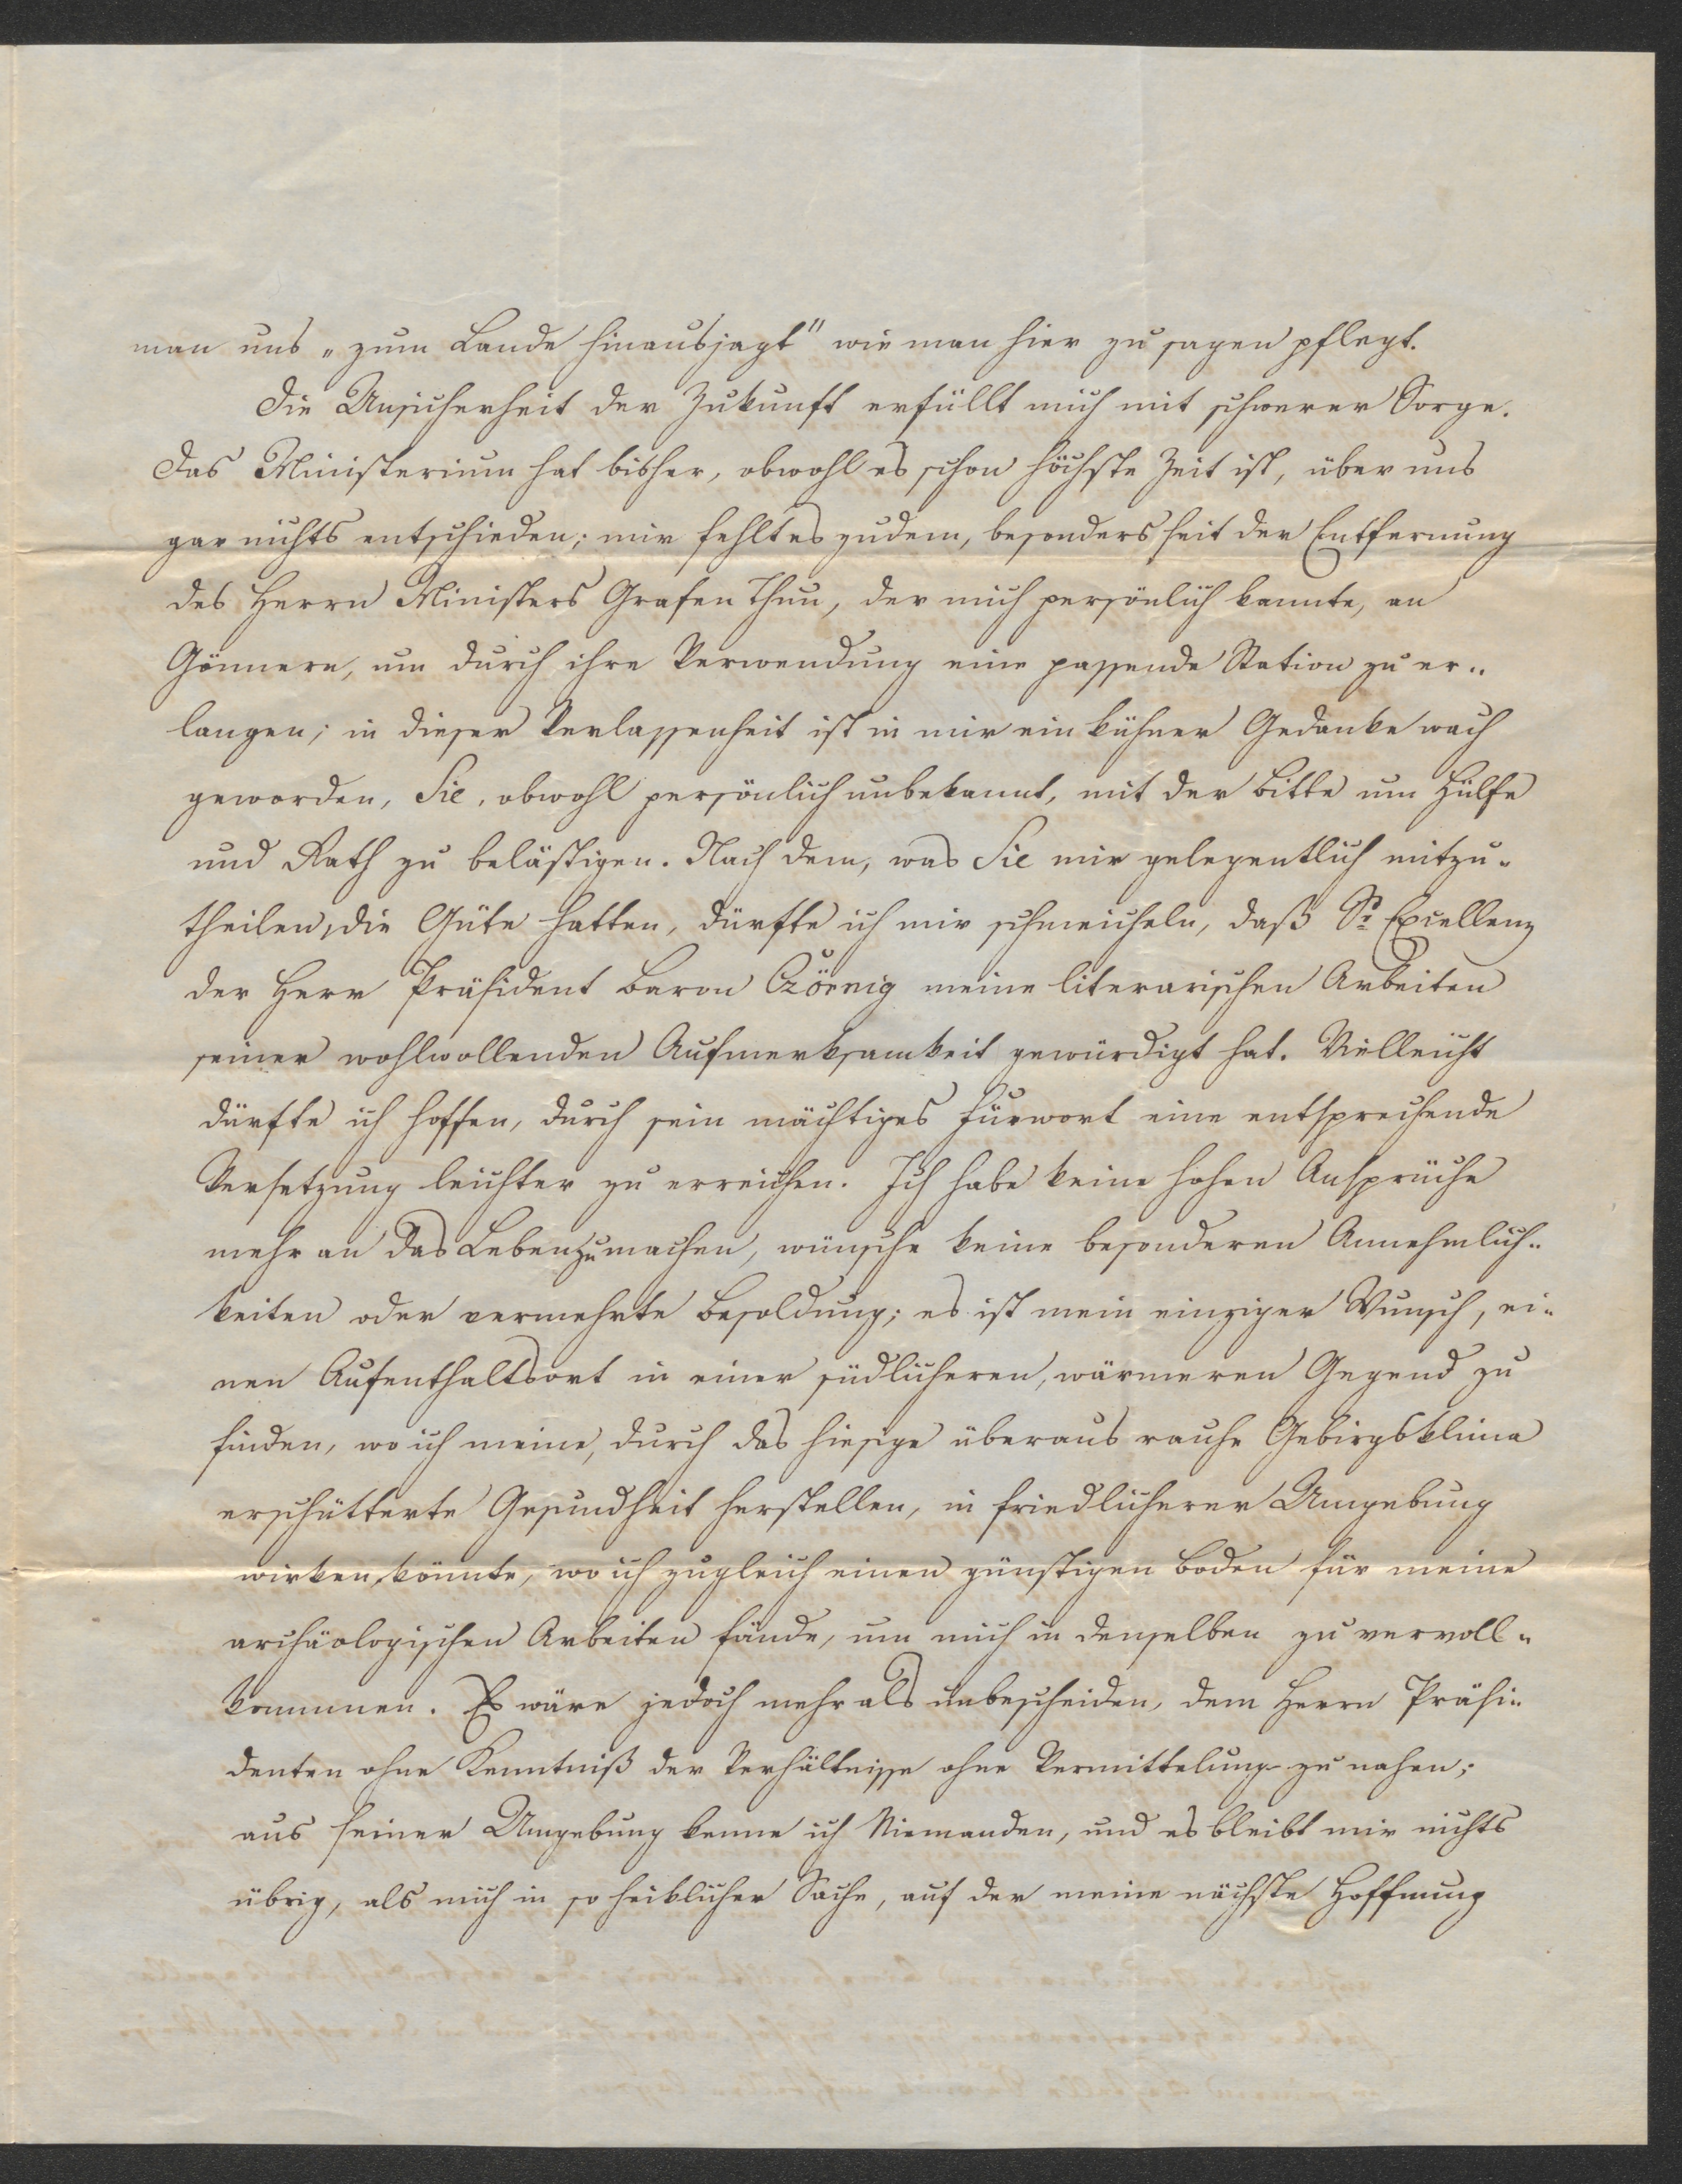 man uns „zum Lande hinausjagt" wie man hier zu sagen pflegt.
Die Unsicherheit der Zukunft erfüllt mich mit schwerer Sorge.
Das Ministerium hat bisher, obwohl es schon höchste Zeit ist, über uns
gar nichts entschieden; mir fehlt es zudem, besonders seit der Entfernung
des Herrn Ministers Grafen Thun, der mich persönlich kannte, an
Gönnern, um durch ihre Verwendung eine passende Station zu er-
langen; in dieser Verlassenheit ist in mir ein kühner Gedanke wach
geworden, Sie, obwohl persönlich unbekannt, mit der Bitte um Hülfe
und Rath zu belästigen. Nach dem, was Sie mir gelegentlich mitzu-
theilen, die Güte hatten, dürfte ich mir schmeicheln, daß Sr Excellenz
der Herr Präsident Baron Czörnig meine literarischen Arbeiten
seiner wohlwollenden Aufmerksamkeit gewürdigt hat. Vielleicht
dürfte ich hoffen, durch sein mächtiges Fürwort eine entsprechende
Versetzung leichter zu erreichen. Ich habe keine hohen Ansprüche
mehr an das Leben zu machen, wünsche keine besonderen Annehmlich-
keiten oder vermehrte Besoldung; es ist mein einziger Wunsch, ei-
nen Aufenthaltsort in einer südlicheren, wärmeren Gegend zu
finden, wo ich meine, durch das hiesige überaus rauhe Gebirgsklima
erschütterte Gesundheit herstellen, in friedlicherer Umgebung
wirken könnte, wo ich zugleich einen günstigen Boden für meine
archäologischen Arbeiten fände, um mich in denselben zu vervoll-
kommnen. Es wäre jedoch mehr als unbescheiden, dem Herrn Präsi-
denten ohne Kenntniß der Verhältnisse ohne Vermittelung zu nahen;
aus seiner Umgebung kenne ich Niemanden, und es bleibt mir nichts
übrig, als mich in so heiklicher Sache, auf der meine nächste Hoffnung